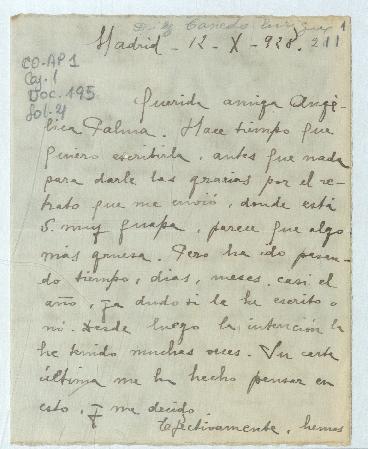 Díez Canedo, Enrique 1
211
Madrid - 12 - X - 928.
CO-AP1
Caj. 1
Doc. 195
Fol. 4
Querida amiga Angé-
lica Palma. Hace tiempo que
quiero escribirla, antes que nada
para darle las gracias por el re-
trato que me envió, donde está
V. muy guapa, parece que algo
más gruesa. Pero ha ido pasan-
do tiempo, días, meses, casi el
año, ya dudo si la he escrito o
nó. Desde luego la intención la
he tenido muchas veces. Su carta
última me ha hecho pensar en
esto, y me decido.
Efectivamente, hemos